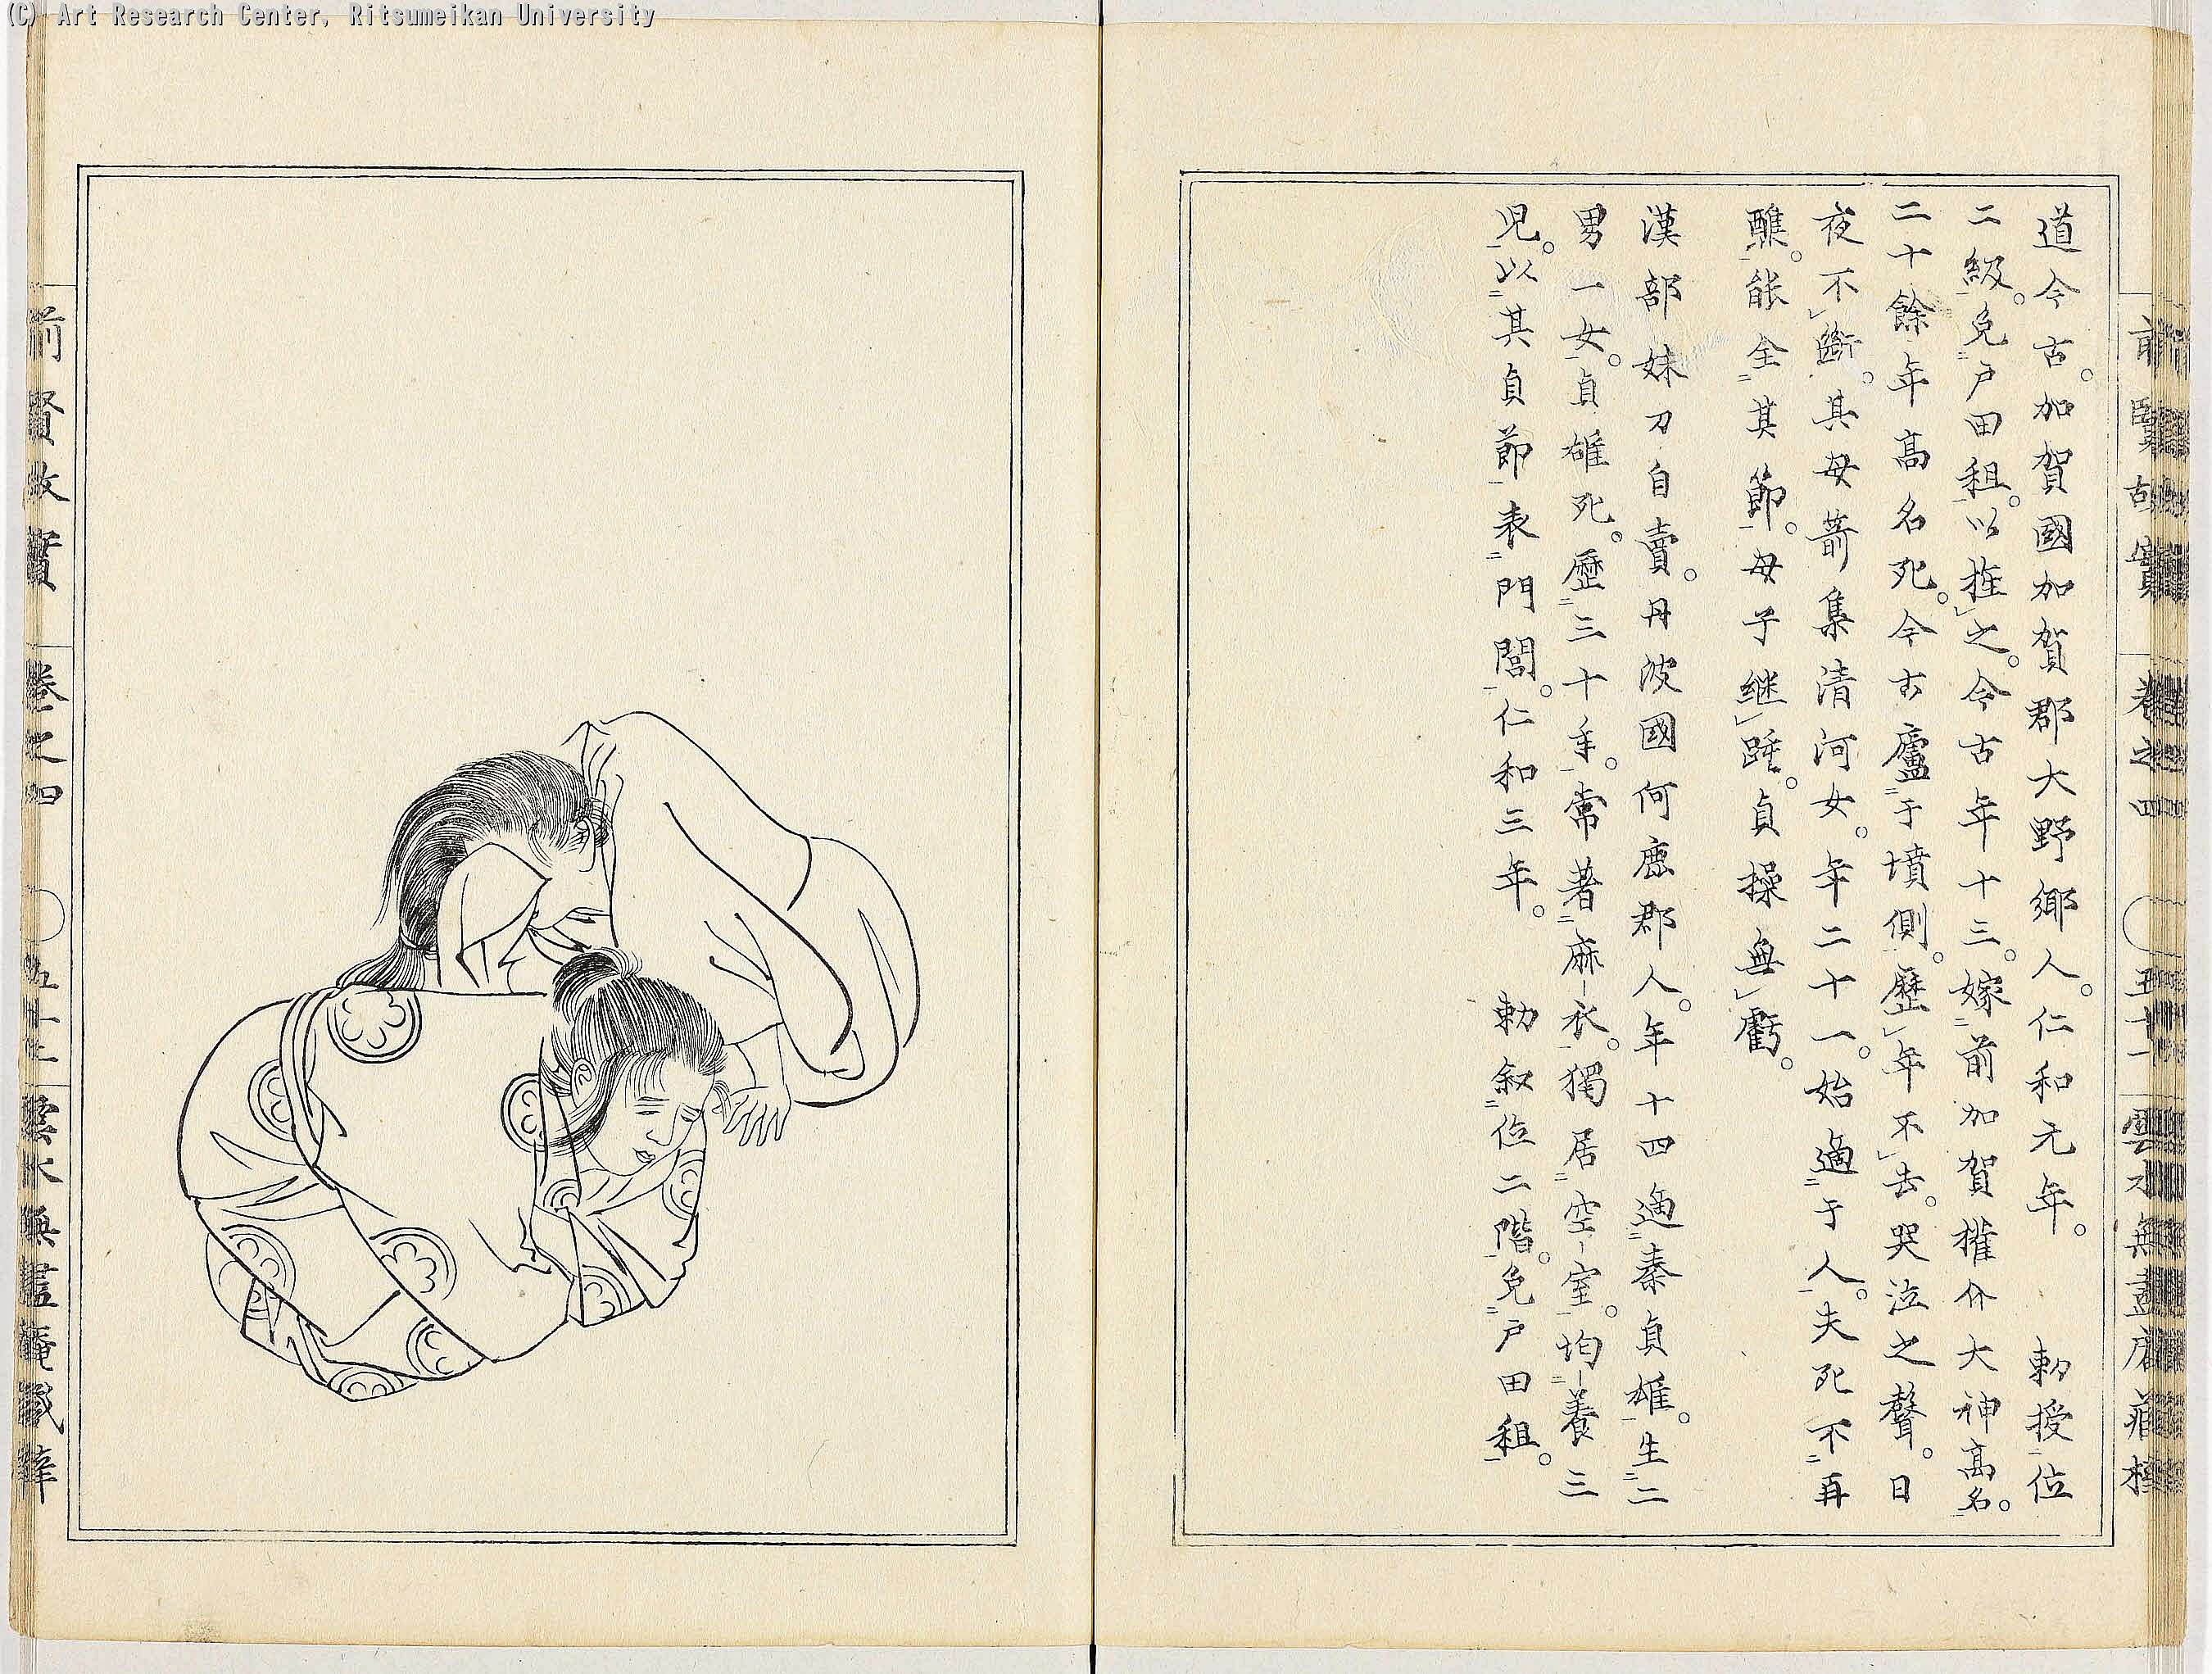 (C) Art Research Center, Ritsumeikan University
前賢故實 卷之四 五十一 雲水無盡庵藏梓
道今古。加賀國加賀郡大野鄉人。仁和元年。 勅授位
二級。免戶田租。以旌之。今古年十三。嫁前加賀權介大神高名。
二十餘年高名死。今古廬于墳側。歷年不去。哭泣之聲。日
夜不斷。其母箭集清河女。年二十一。始適于人。夫死不再
醮。能全其節。母子継踵。貞操無虧。
漢部妹刀自賣。丹波國何鹿郡人。年十四適秦貞雄。生二
男一女。貞雄死。歷三十年。常著麻衣。獨居空室。均養三
児。以其貞節表門閭。仁和三年。 勅叙位二階。免戶田租。
前賢故實 卷之四 五十二 雲水無盡庵藏梓